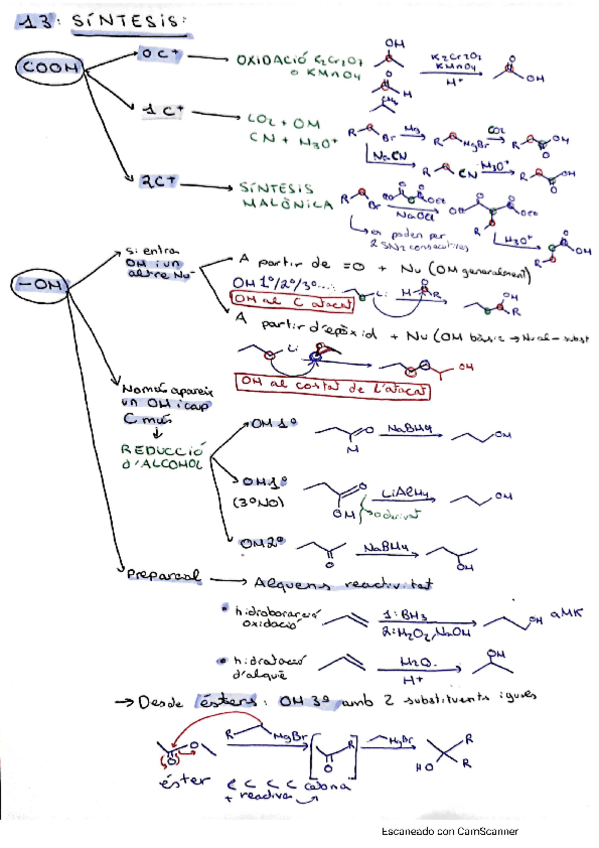 13: SÍNTESIS:
COOH
0 C⁺
OXIDACIÓ K₂Cr₂O₇
O KMnO₄
OH
K₂Cr₂O₇
KMnO₄
H⁺
OH
1 C⁺
CO₂ + OM
CN + H₃O⁺
R Br Mg R MgBr CO₂ R OH
O
NaCN R CN H₃O⁺ R OH
O
2C⁺
SÍNTESIS
MALÒNICA
R Br
OEt
OEt
R
H₃O⁺
R OH
O
es poden per
2 SN2 consecutives
-OH
Si entra
OH i un
altre Nu⁻
A partir de =O + Nu (OM generalment)
OH 1º/2º/3º...
OH al C atacat
Li H O R
OH
R
A partir d'epòxid + Nu (OM bàsic → Nu al - subst
Li O OH
OH al costat de l'atacat
Només apareix
un OH i cap
C més
REDUCCIÓ
d'ALCOHOL
OH 1º
O
H
NaBH₄
OH
OH1º
(3º NO)
O
OH
o derivat
LiAlH₄
OH
OH2º
O
NaBH₄
OH
Preparcal
Alquens reactivitat
• hidroboració
oxidació
1: BH₃
2: H₂O₂, NaOH
OH aMK
• hidratació
d'alquè
H₂O
H⁺
OH
→ Desde ésters: OH 3º amb 2 substituents iguals
O
O
R MgBr
R
O
MgBr
HO
R
R
éster < < < < cetona
+ reactiva
Escaneado con CamScanner